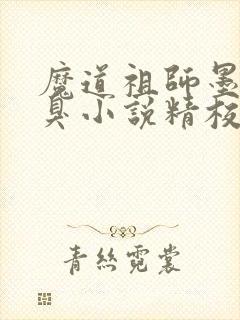 魔道祖師墨
臭小說精校
青絲霓裳